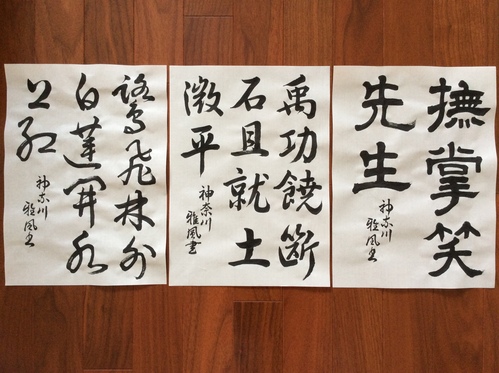 撫掌笑
先生
神奈川
雅風書
禹功饒斷
石且就土
微平
神奈川
雅風書
鷺飛林外
白蓮開水
上紅
神奈川
雅風書